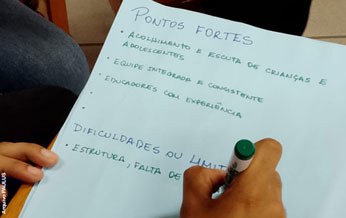 PONTOS FORTES
• ACOLHIMENTO E ESCUTA DE CRIANÇAS E
ADOLESCENTES
• EQUIPE INTEGRADA E CONSISTENTE
• EDUCADORES COM EXPERIÊNCIA
•
•
DIFICULDADES OU LIMIT
• ESTRUTURA, FALTA DE
Arquivo PAULUS